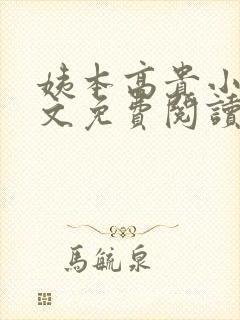 姨本高貴小
文免費閱讀
馬毓泉